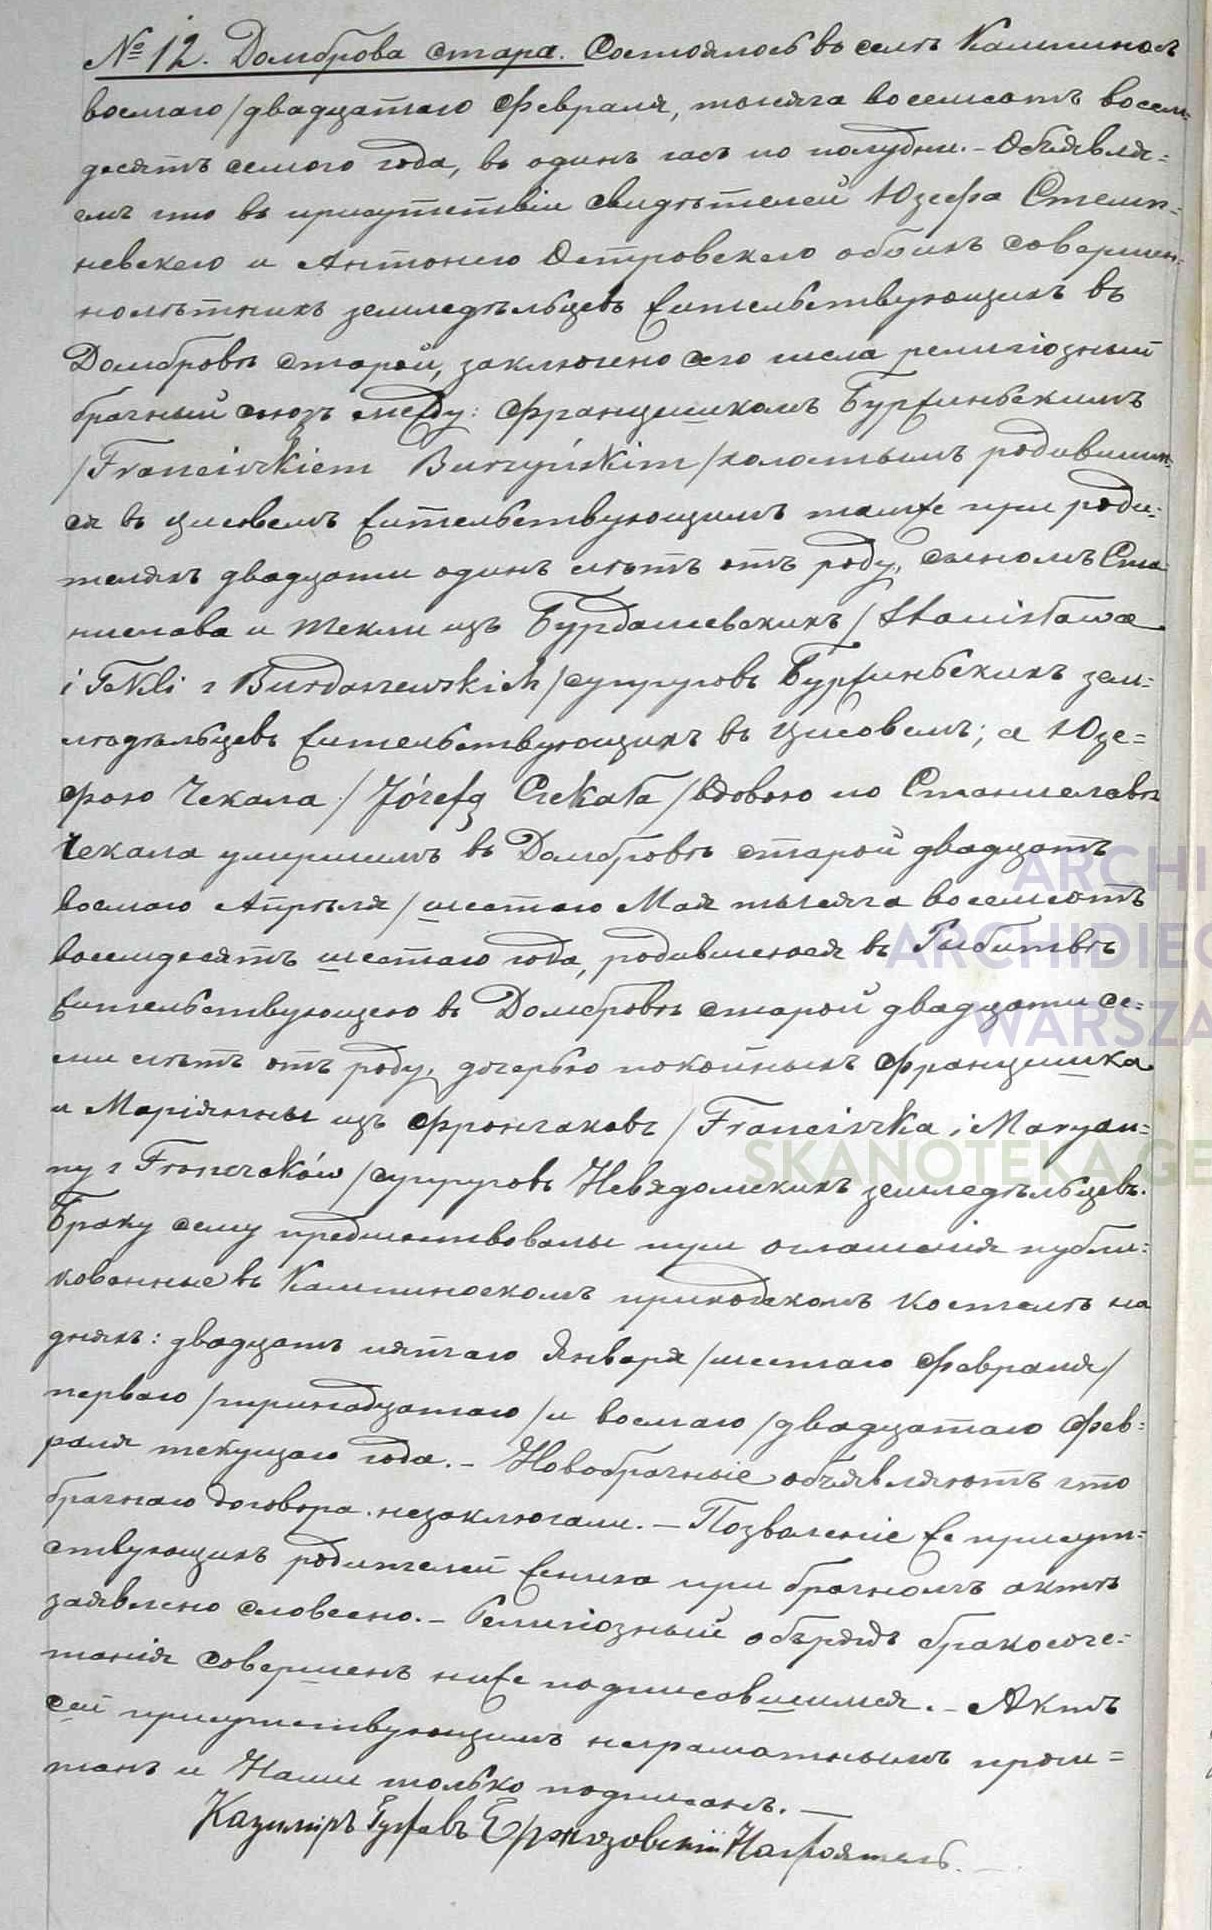 № 12. Домброва стара. Состоялось въ селѣ Кампиносѣ
восьмаго /двадцатаго февраля, тысяча восемьсотъ восемь-
десятъ седьмого года, въ одинъ часъ по полудни. – Объявля=
емъ что въ присутствіи свидѣтелей Юзефа Стемп=
невскего и Антонего Островскего обоихъ совершен=
нолѣтнихъ земледѣльцевъ жительствующихъ въ
Домбровѣ старой, заключено сего числа религіозный
брачный союзъ между: Францишкомъ Буржиньскимъ
/Franciszkiem Burzyńskim/ холостымъ родившим=
ся въ Цисовемъ жительствующимъ тамже при роди=
теляхъ двадцати одинъ лѣтъ отъ роду, сыномъ Ста
нислава и Текли изъ Бурдашевскихъ /Stanisława
i Tekli z Burdaszewskich/ супруговъ Буржиньскихъ зем=
ледѣльцевъ жительствующихъ въ Цисовемъ; а Юзе=
фою Чекала /Józefą Czekała/ вдовою по Станиславѣ
Чекала умершимъ въ Домбровѣ старой двадцать
восьмаго Апрѣля /шестаго Мая тысяча восемьсотъ
восемьдесятъ шестаго года, родившеюся въ Рыбитвѣ
жительствующею въ Домбровѣ старой двадцати се=
ми лѣтъ отъ роду, дочерью покойныхъ Францишка
и Маріянны изъ Фрончаковъ /Franciszka i Maryan=
ny z Frączaków/ супруговъ Невядомскихъ земледѣльцевъ.
Браку сему предшествовалы три оглашенія публи=
кованные въ Кампиноскомъ приходскомъ костелѣ на
дняхъ: двадцать пятаго Января /шестаго Февраля/
перваго /тринадцатаго/ и восьмаго /двадцатаго Фев=
раля текущаго года. – Новобрачные объявляютъ что
брачнаго договора незаключали. – Позволеніе же присут=
ствующихъ родителей жениха при брачномъ актѣ
заявлено словесно. – Религіозный обърядъ бракосоче=
танія совершенъ ниже подписовшимся. – Актъ
сей присутствующимъ неграмотнымъ прочи=
танъ и Нами только подписанъ. –
Казиміръ Настоятель.
ARCHI
ARCHIDIEC
WARSZA
SKANOTEKA.GE